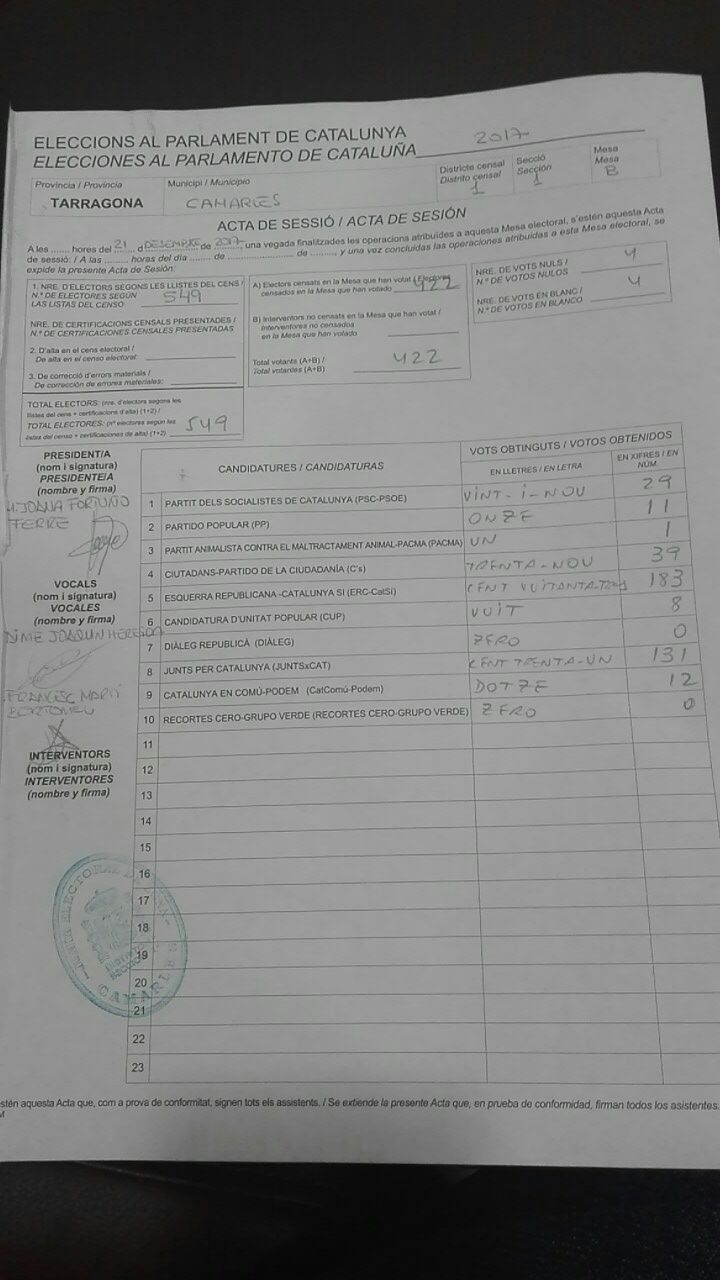 ELECCIONS AL PARLAMENT DE CATALUNYA
ELECCIONES AL PARLAMENTO DE CATALUÑA 2017
Província / Provincia
TARRAGONA
Municipi / Municipio
CAMARLES
Districte censal
Distrito censal
1
Secció
Sección
1
Mesa
Mesa
B
ACTA DE SESSIÓ / ACTA DE SESIÓN
A les ....... hores del 21 d DESEMBRE de 2017, una vegada finalitzades les operacions atribuïdes a aquesta Mesa electoral, s'estén aquesta Acta
de sessió: / A las ........ horas del día ........ de ........................ de ........, y una vez concluidas las operaciones atribuidas a esta Mesa electoral, se
expide la presente Acta de Sesión:
1. NRE. D'ELECTORS SEGONS LES LLISTES DEL CENS /
N.º DE ELECTORES SEGÚN
LAS LISTAS DEL CENSO 549
NRE. DE CERTIFICACIONS CENSALS PRESENTADES /
N.º DE CERTIFICACIONES CENSALES PRESENTADAS
2. D'alta en el cens electoral /
De alta en el censo electoral:
3. De correcció d'errors materials /
De corrección de errores materiales:
TOTAL ELECTORS: (nre. d'electors segons les
llistes del cens + certificacions d'alta) (1+2) /
TOTAL ELECTORES: (nº electores según las
listas del censo + certificaciones de alta) (1+2) 549
A) Electors censats en la Mesa que han votat / Electores
censados en la Mesa que han votado 422
B) Interventors no censats en la Mesa que han votat /
Interventores no censados
en la Mesa que han votado
Total votants (A+B) /
Total votantes (A+B) 422
NRE. DE VOTS NULS /
N.º DE VOTOS NULOS 4
NRE. DE VOTS EN BLANC /
N.º DE VOTOS EN BLANCO 4
PRESIDENT/A
(nom i signatura)
PRESIDENTE/A
(nombre y firma)
M.JOANA FORTUÑO
FERRE
VOCALS
(nom i signatura)
VOCALES
(nombre y firma)
JOAQUIN
FRANCESC MARTÍ
INTERVENTORS
(nom i signatura)
INTERVENTORES
(nombre y firma)
CANDIDATURES / CANDIDATURAS
VOTS OBTINGUTS / VOTOS OBTENIDOS
EN LLETRES / EN LETRA
EN XIFRES / EN
NÚM.
1 PARTIT DELS SOCIALISTES DE CATALUNYA (PSC-PSOE) VINT-I-NOU 29
2 PARTIDO POPULAR (PP) ONZE 11
3 PARTIT ANIMALISTA CONTRA EL MALTRACTAMENT ANIMAL-PACMA (PACMA) UN 1
4 CIUTADANS-PARTIDO DE LA CIUDADANÍA (C's) TRENTA-NOU 39
5 ESQUERRA REPUBLICANA -CATALUNYA SÍ (ERC-CatSí) CENT VUITANTA-TRES 183
6 CANDIDATURA D'UNITAT POPULAR (CUP) VUIT 8
7 DIÀLEG REPUBLICÀ (DIÀLEG) ZERO 0
8 JUNTS PER CATALUNYA (JUNTSxCAT) CENT TRENTA-UN 131
9 CATALUNYA EN COMÚ-PODEM (CatComú-Podem) DOTZE 12
10 RECORTES CERO-GRUPO VERDE (RECORTES CERO-GRUPO VERDE) ZERO 0
11
12
13
14
15
16
17
18
19
20
21
22
23
CAMARLES
stén aquesta Acta que, com a prova de conformitat, signen tots els assistents. / Se extiende la presente Acta que, en prueba de conformidad, firman todos los asistentes.